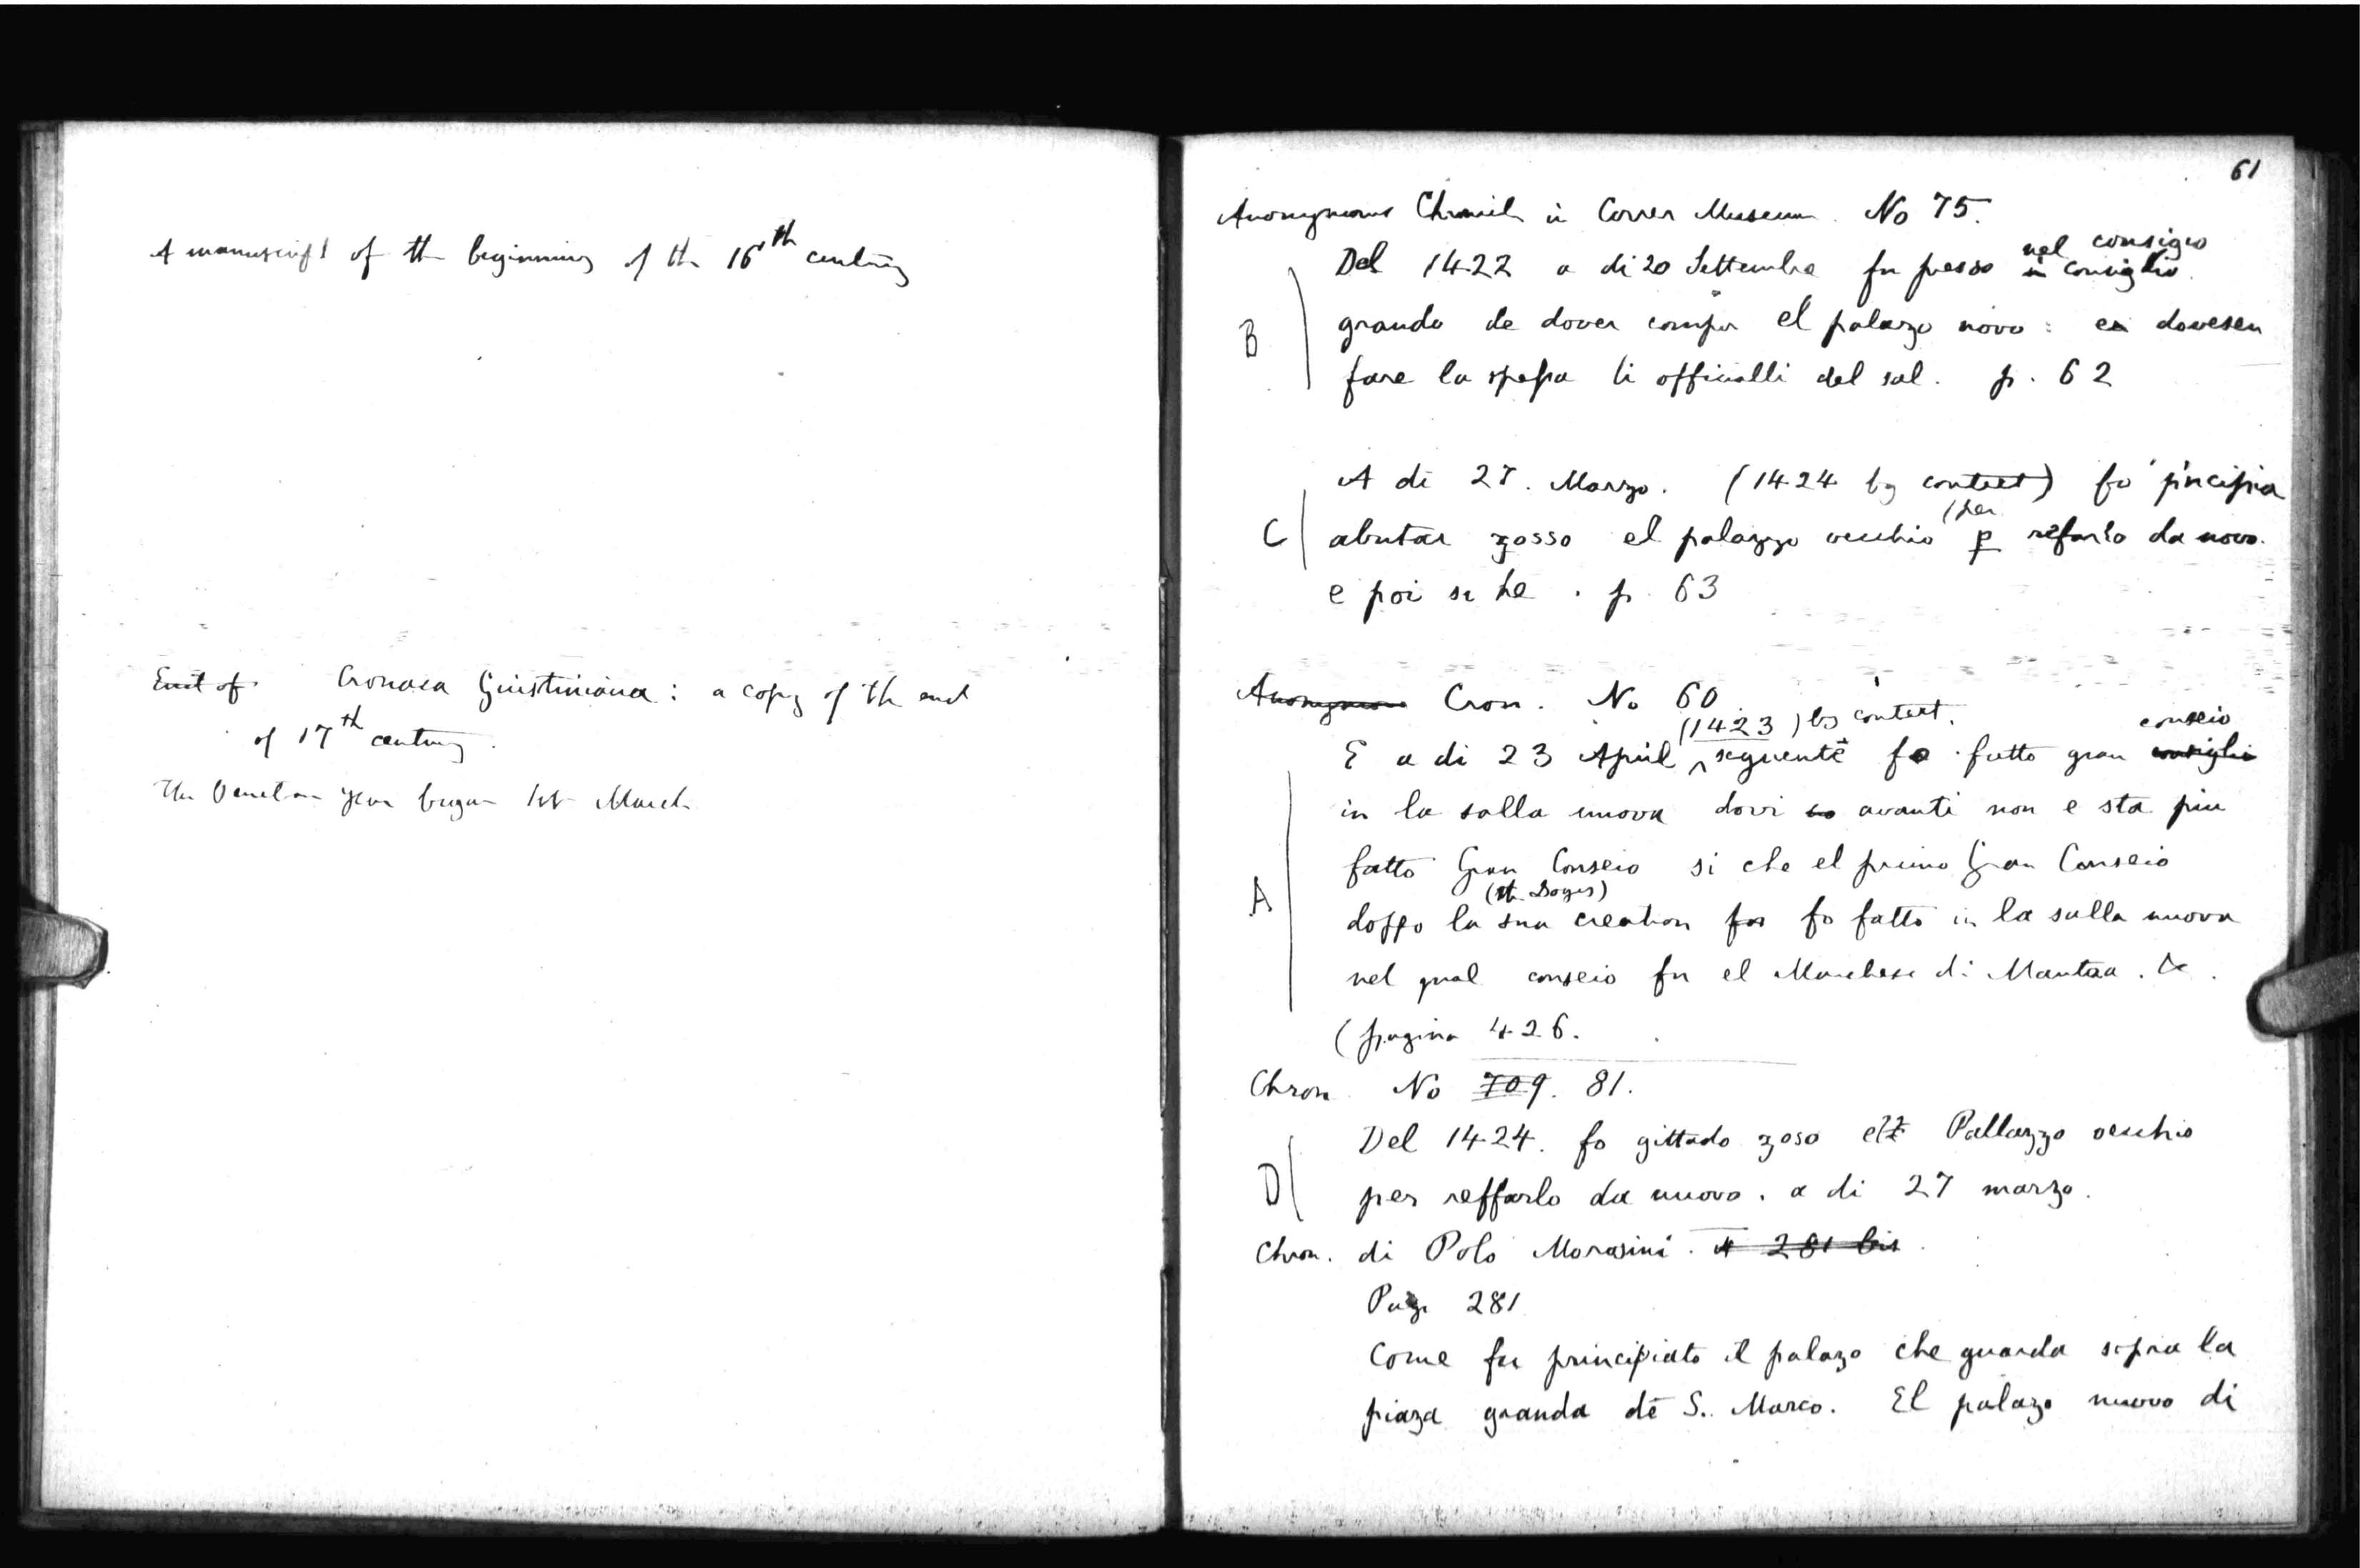 A manuscript of the beginning of the 16th century
End of Cronaca Giustiniana : a copy of the end
of 17th century.
The Venetian year began 1st March
61
Anonymous Chronicle in Correr Museum. No 75.
nel consigio
Del 1422 a di 20 Settembre fu presso in consiglio
B
grando de dover compir el palazo novo : dovesen
fare la spessa li officialli del sal. p. 62
A di 27. Marzo. (1424 by context) fo p'ncipia
(per
C
abutar zosso el palazzo vecchio p refarlo da novo.
e poi se he . p. 63
Anonymous Cron. No 60
(1423) by context.
conseio
E a di 23 April seguente fo fatto gran consiglio
in la salla nuova dovi avanti non e sta piu
fatto Gran Conseio si che el primo Gran Conseio
(the Doges)
A
doppo la sua creation fo fatto in la salla nuova
nel qual conseio fu el Marchese di Mantoa. &c.
(pagina 426.
Chron. No 709. 81.
Del 1424. fo gittado zoso el Pallazzo vecchio
D
per reffarlo da nuovo. a di 27 marzo.
Chron. di Polo Morasini. 281 bis
Page 281
Come fu principiato il palazo che guarda sopra la
piaza granda de S. Marco. El palazo nuovo di